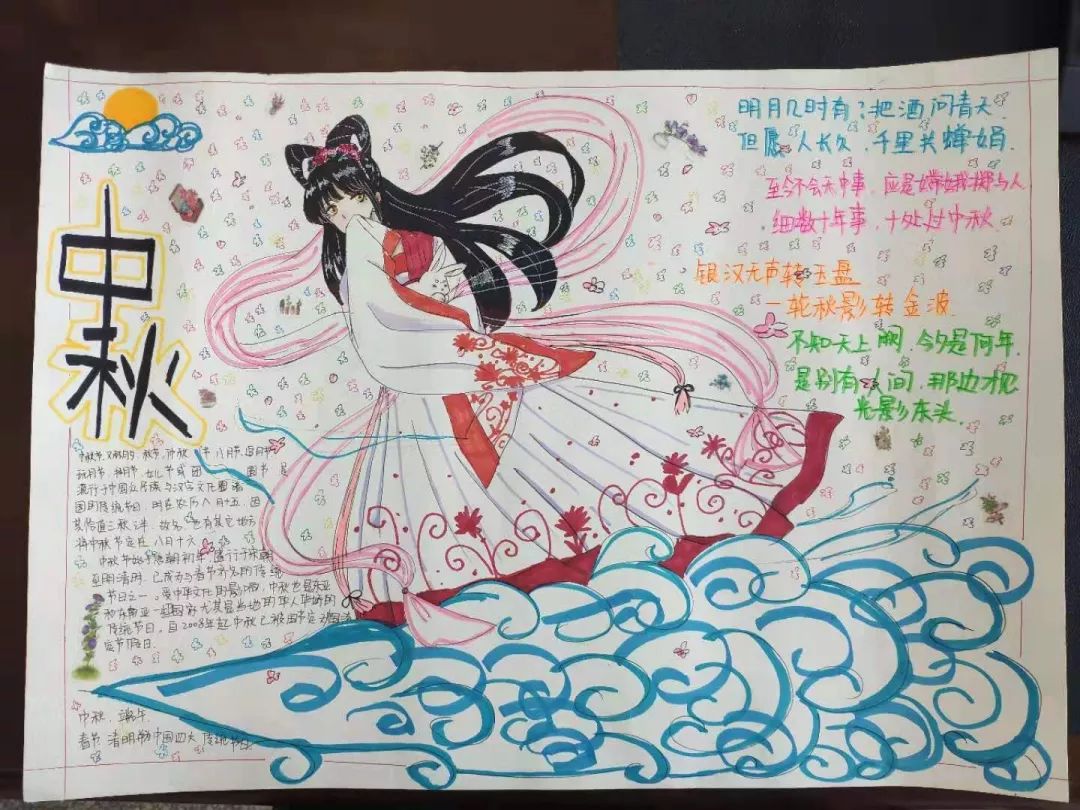 中秋
明月几时有?把酒问青天
但愿人长久,千里共蝉娟.
至今不会天中事,应是嫦娥掷与人
细数十年事,十处过中秋
银汉无声转玉盘
一轮秋影转金波.
不知天上阙,今夕是何年.
是别有人间,那边才见
光影东头.
中秋节,又称月夕、秋节、仲秋 八月节、追月节
玩月节、拜月节、女儿节或团 圆节 是
流行于中国众民族与汉字文化圈诸
国的传统节日,时在农历八月十五,因
其恰值三秋之半,故名,也有其它地方
将中秋节定在八月十六
中秋节始于唐朝初年,盛行于宋朝
至明清时,已成为与春节齐名的传统
节日之一,受中华文化的影响,中秋也是东亚
和东南亚一些国家尤其是当地的华人华侨的
传统节日,自2008年起中秋已被国务定为国
定节假日.
中秋、端午、
春节、清明节中国四大传统节日